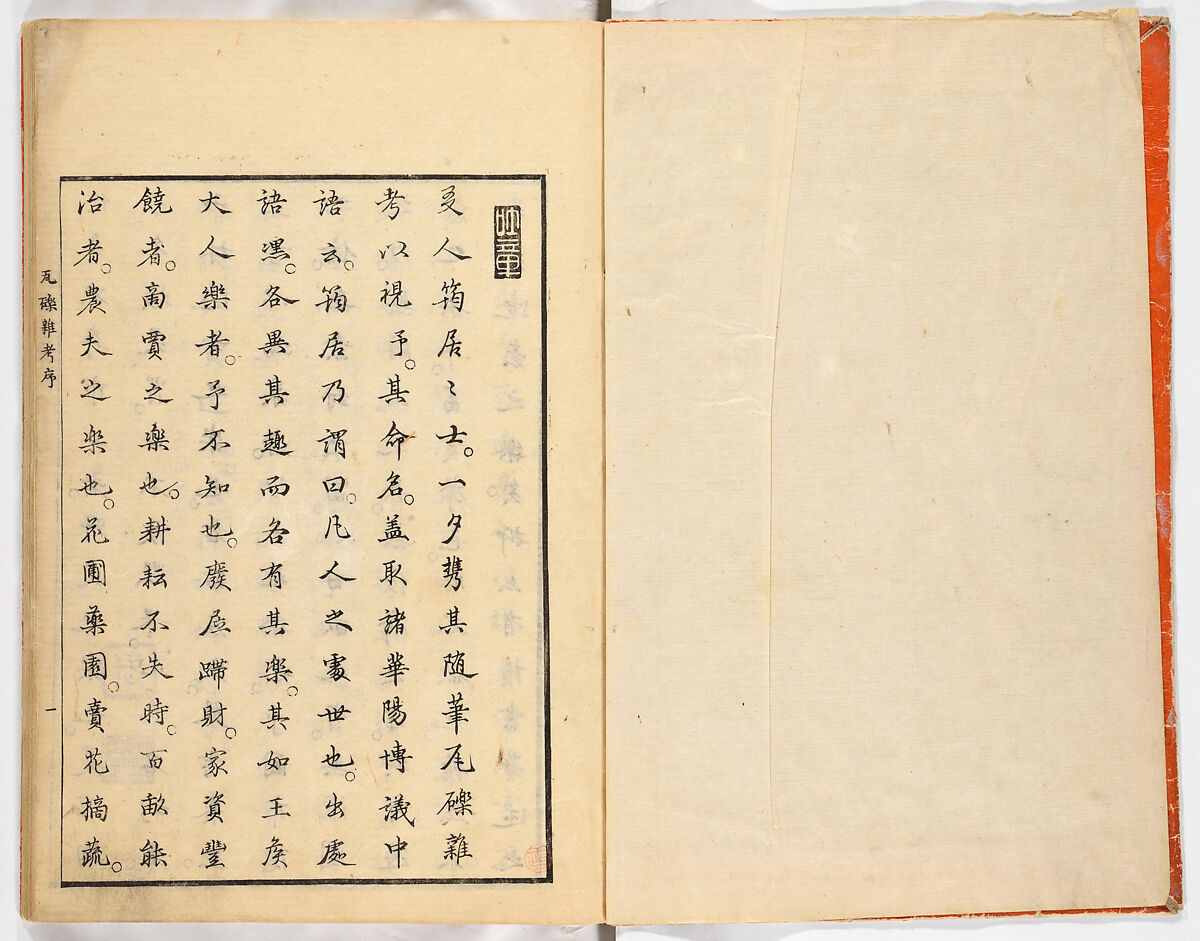 友人筠居〻士。一夕携其随筆瓦礫雜
考以視予。其命名。盖取諸華陽博議中
語云。筠居乃謂曰。凡人之處世也。出處
語嘿。各異其趣而各有其楽。其如王侯
大人樂者。予不知也。廢居蹛財。家資豐
饒者。商賈之楽也。耕耘不失時。百畝能
治者。農夫之楽也。花圃薬園。賣花摘蔬。
瓦礫雜考序
一